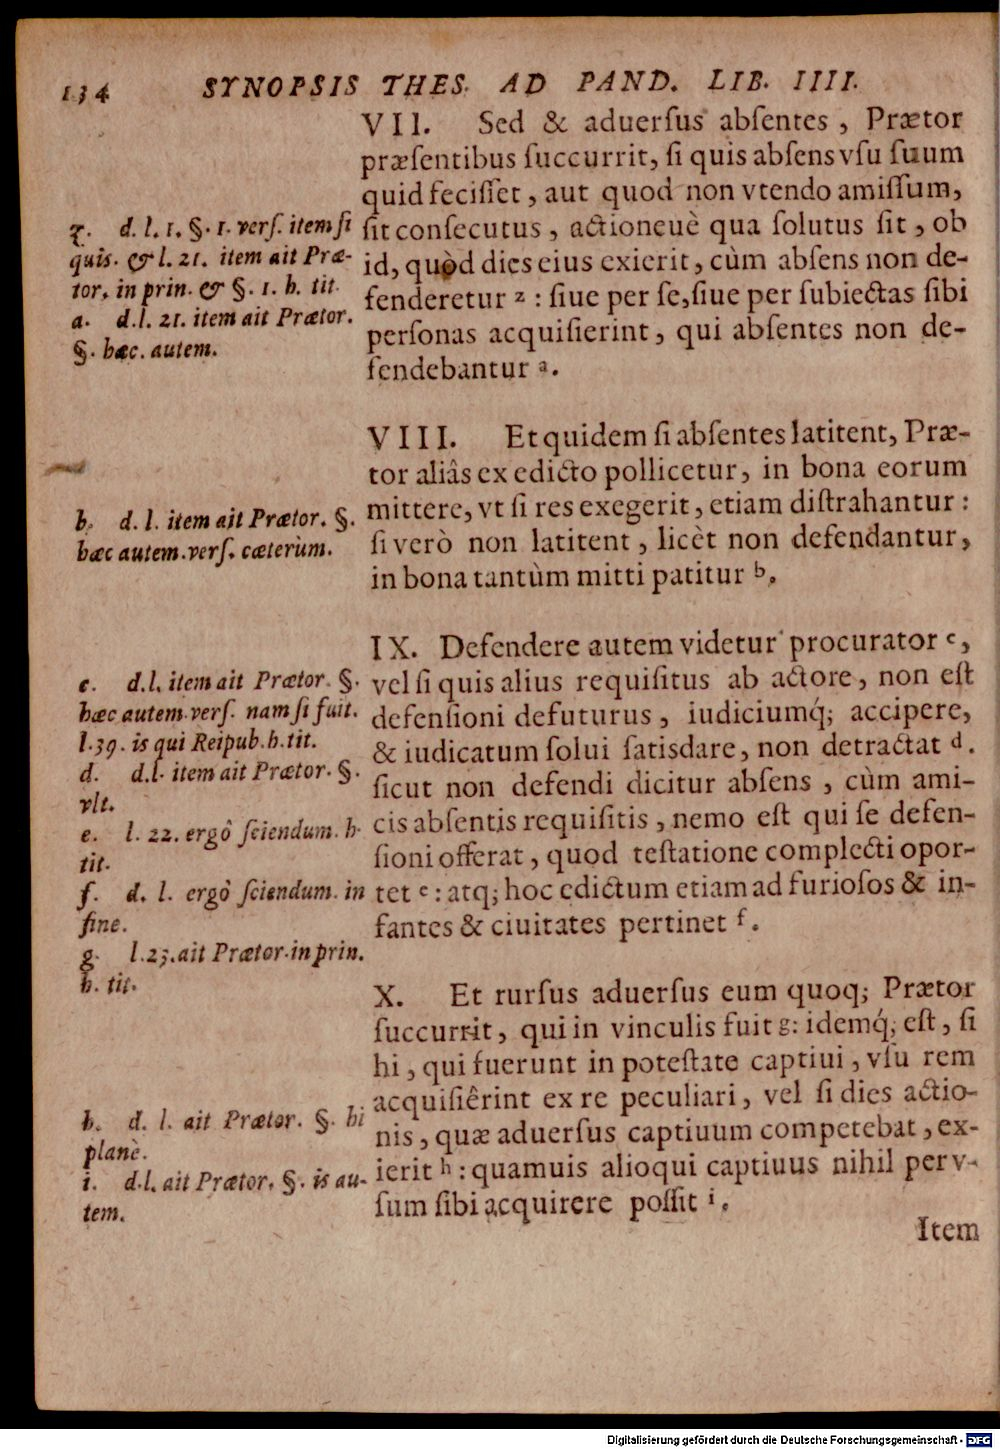 134 SYNOPSIS THES. AD PAND. LIB. IIII.
VII. Sed & aduerſus abſentes, Prætor
præſentibus ſuccurrit, ſi quis abſens vſu ſuum
quid feciſſet, aut quod non vtendo amiſſum,
ſit conſecutus, actioneuè qua ſolutus ſit, ob
id, quòd dies eius exierit, cùm abſens non de-
fenderetur z : ſiue per ſe, ſiue per ſubiectas ſibi
perſonas acquiſierint, qui abſentes non de-
fendebantur a.
z. d. l. 1. §. 1. verſ. item ſi
quis. & l. 21. item ait Præ-
tor, in prin. & §. 1. h. tit.
a. d. l. 21. item ait Prætor.
§. hæc. autem.
VIII. Et quidem ſi abſentes latitent, Præ-
tor aliâs ex edicto pollicetur, in bona eorum
mittere, vt ſi res exegerit, etiam diſtrahantur :
ſi verò non latitent, licèt non defendantur,
in bona tantùm mitti patitur b.
b. d. l. item ait Prætor. §.
hæc autem. verſ. cæterùm.
IX. Defendere autem videtur procurator c,
vel ſi quis alius requiſitus ab actore, non eſt
defenſioni defuturus, iudiciumq́; accipere,
& iudicatum ſolui ſatisdare, non detractat d.
ſicut non defendi dicitur abſens, cùm ami-
cis abſentis requiſitis, nemo eſt qui ſe defen-
ſioni offerat, quod teſtatione complecti opor-
tet e : atq; hoc edictum etiam ad furioſos & in-
fantes & ciuitates pertinet f.
c. d. l. item ait Prætor. §.
hæc autem. verſ. nam ſi fuit.
l. 39. is qui Reipub. h. tit.
d. d. l. item ait Prætor. §.
vlt.
e. l. 22. ergò ſciendum. h.
tit.
f. d. l. ergò ſciendum. in
fine.
g. l. 23. ait Prætor. in prin.
h. tit.
X. Et rurſus aduerſus eum quoq; Prætor
ſuccurrit, qui in vinculis fuit g : idemq́; eſt, ſi
hi, qui fuerunt in poteſtate captiui, vſu rem
acquiſiêrint ex re peculiari, vel ſi dies actio-
nis, quæ aduerſus captiuum competebat, ex-
ierit h : quamuis alioqui captiuus nihil per v-
ſum ſibi acquirere poſſit i.
h. d. l. ait Prætor. §. hi
planè.
i. d. l. ait Prætor. §. is au-
tem.
Item
Digitalisierung gefördert durch die Deutsche Forschungsgemeinschaft - DFG